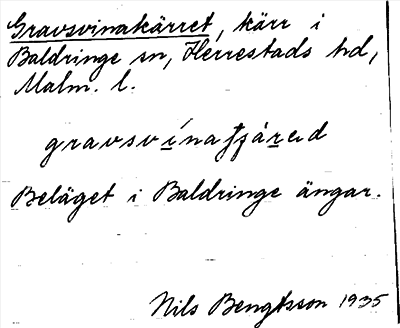 Gravsvinakärret, kärr i
Baldringe sn, Herrestads hd,
Malm. l.
Beläget i Baldringe ängar.
Nils Bengtsson 1935